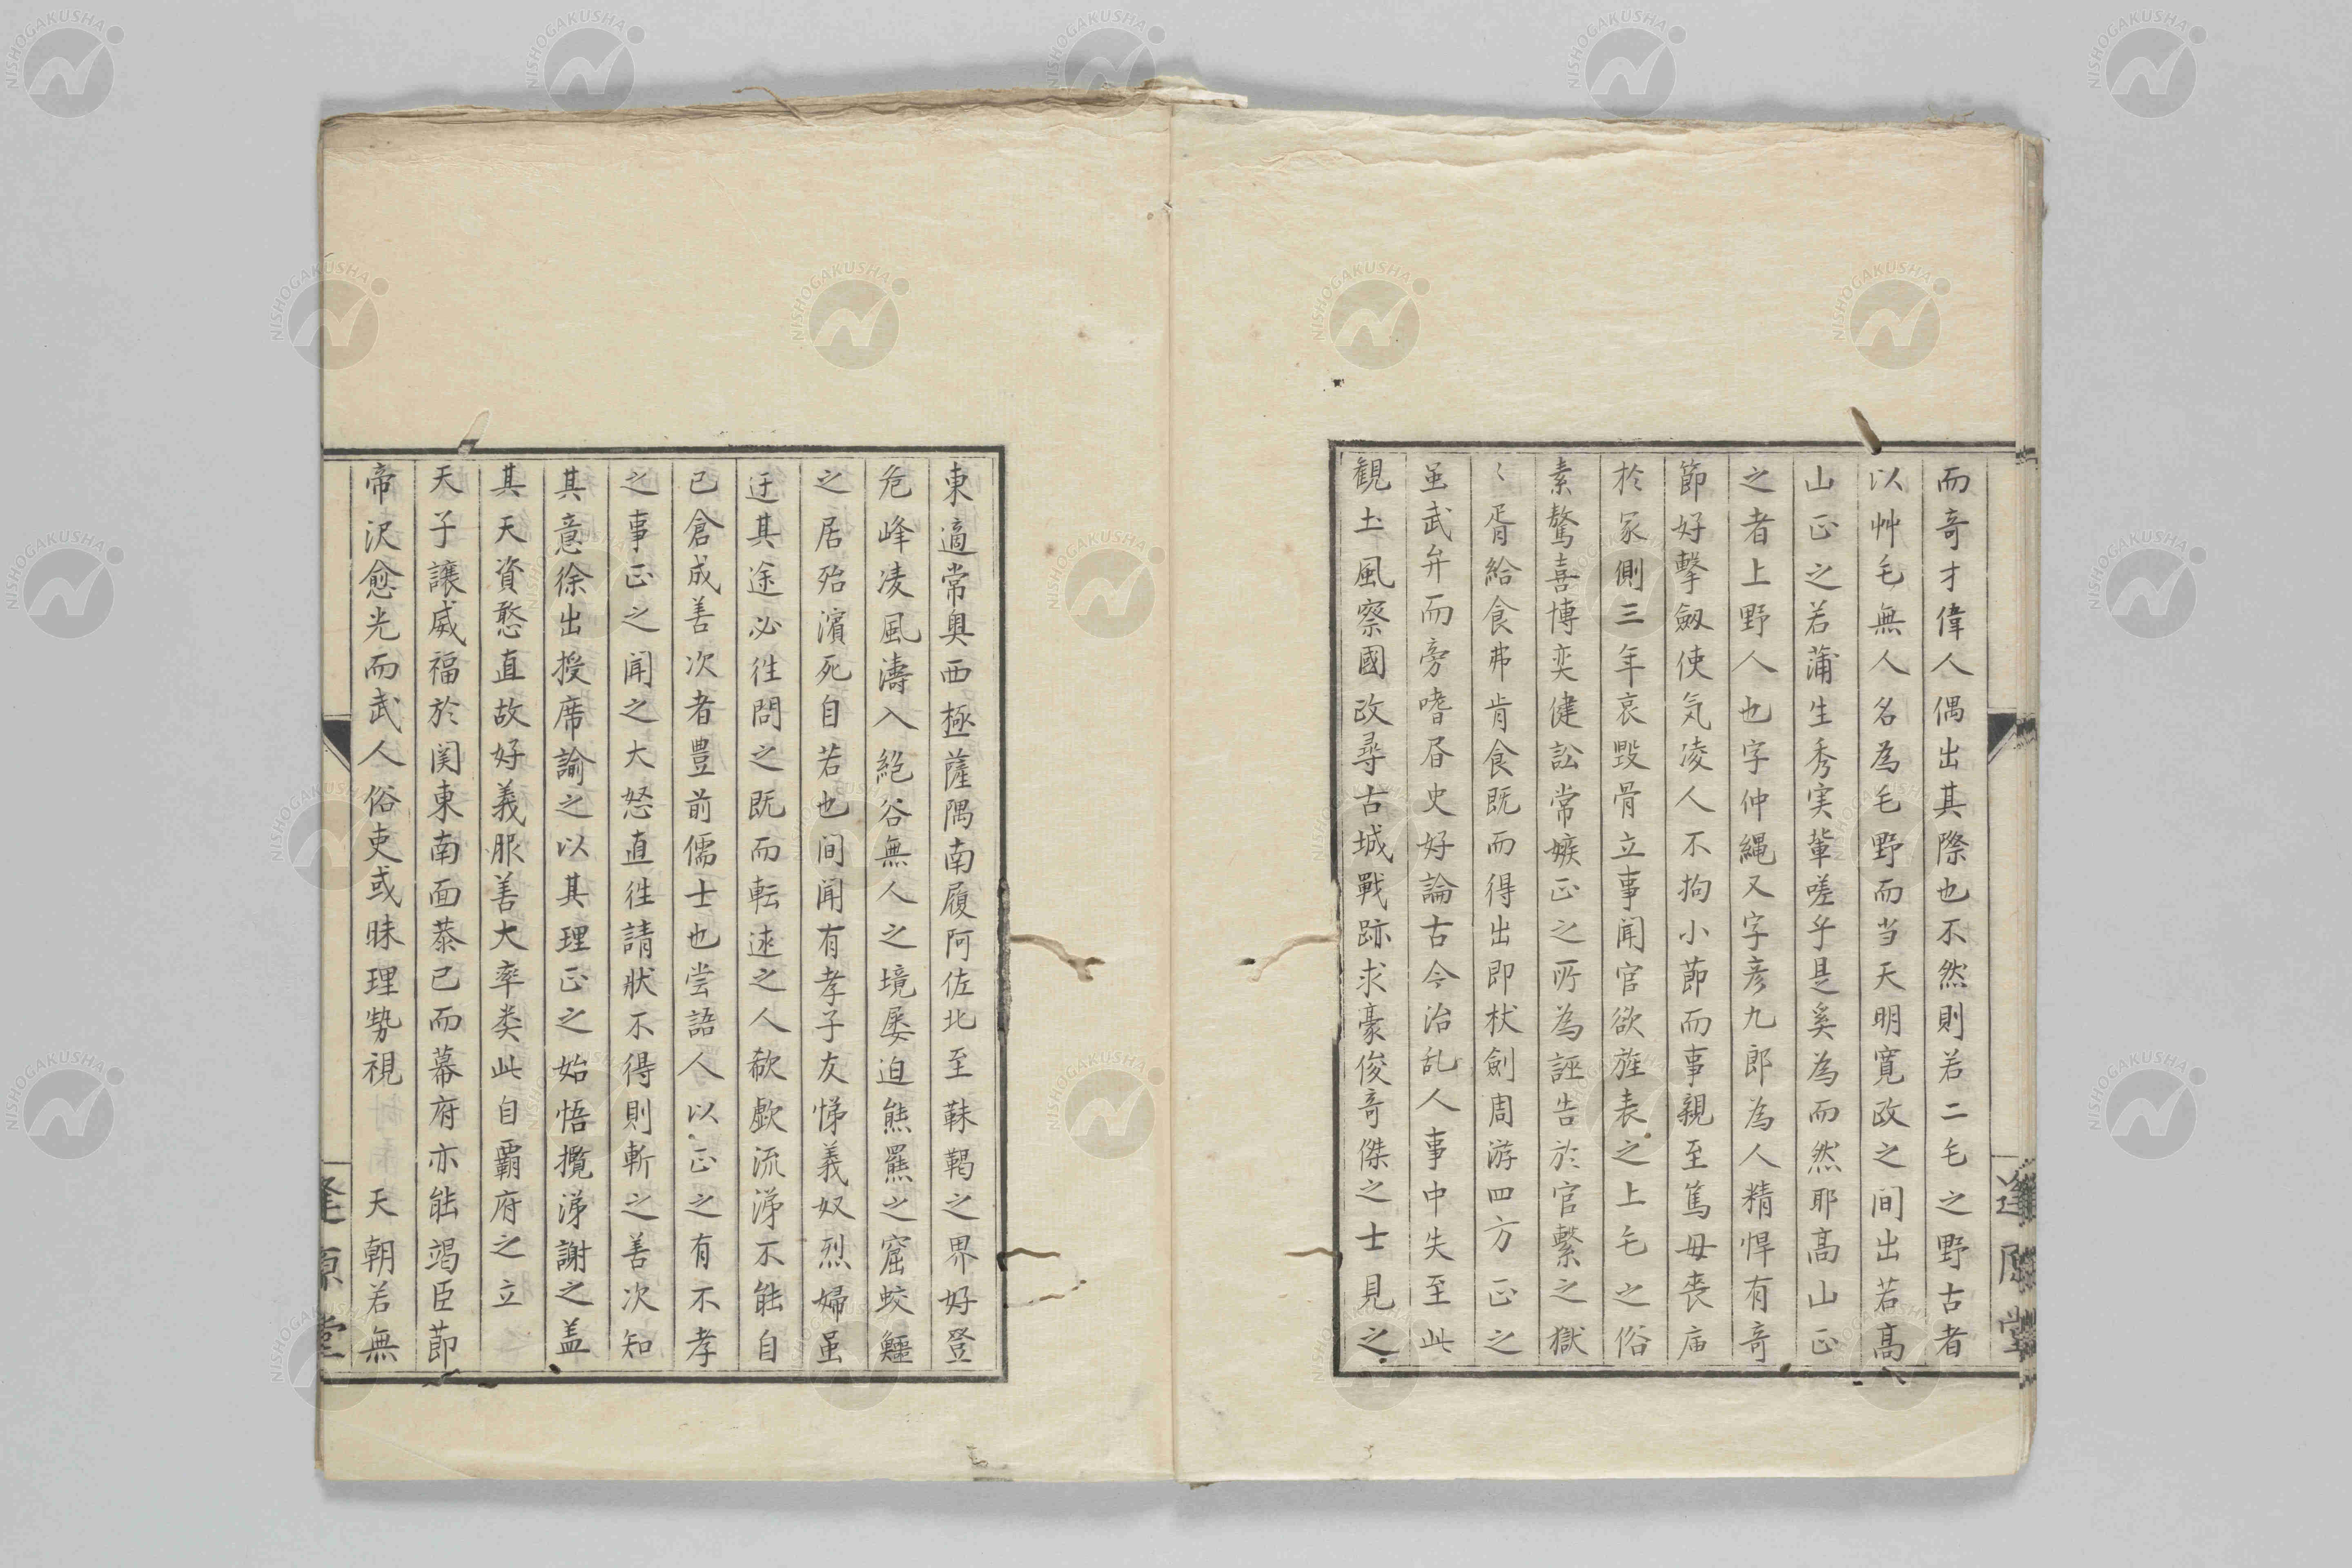 而奇才偉人偶出其際也不然則若二毛之野古者
以艸毛無人名為毛野而当天明寛政之间出若髙
山正之若蒲生秀実軰嗟乎是奚為而然耶髙山正
之者上野人也字仲縄又字彦九郎為人精悍有奇
節好擊劔使気凌人不拘小節而事親至篤毋喪庙
於冢側三年哀毀骨立事闻官欲旌表之上毛之俗
素驁喜博奕健訟常嫉正之所為誣告於官繫之獄
〻胥給食弗肯食既而得出即杖劍周游四方正之
虽武弁而旁嗜昏史好論古今治乱人事中失至此
観土風察國政尋古城戰跡求豪俊奇傑之士見之
逢原堂
東適常奥西極薩隅南履阿佐北至靺鞨之界好登
危峰凌風濤入絶谷無人之境屡迫熊羆之窟蛟鱷
之居殆濱死自若也间闻有孝子友悌義奴烈婦虽
迂其途必徃問之既而転述之人欷歔流涕不能自
已倉成善次者豊前儒士也尝語人以正之有不孝
之事正之闻之大怒直徃請狀不得則斬之善次知
其意徐出授席諭之以其理正之始悟攬涕謝之盖
其天資憨直故好義服善大率类此自覇府之立
天子譲威福於関東南面恭已而幕府亦能竭臣節
帝沢愈光而武人俗吏或昧理势視 天朝若無
逢原堂